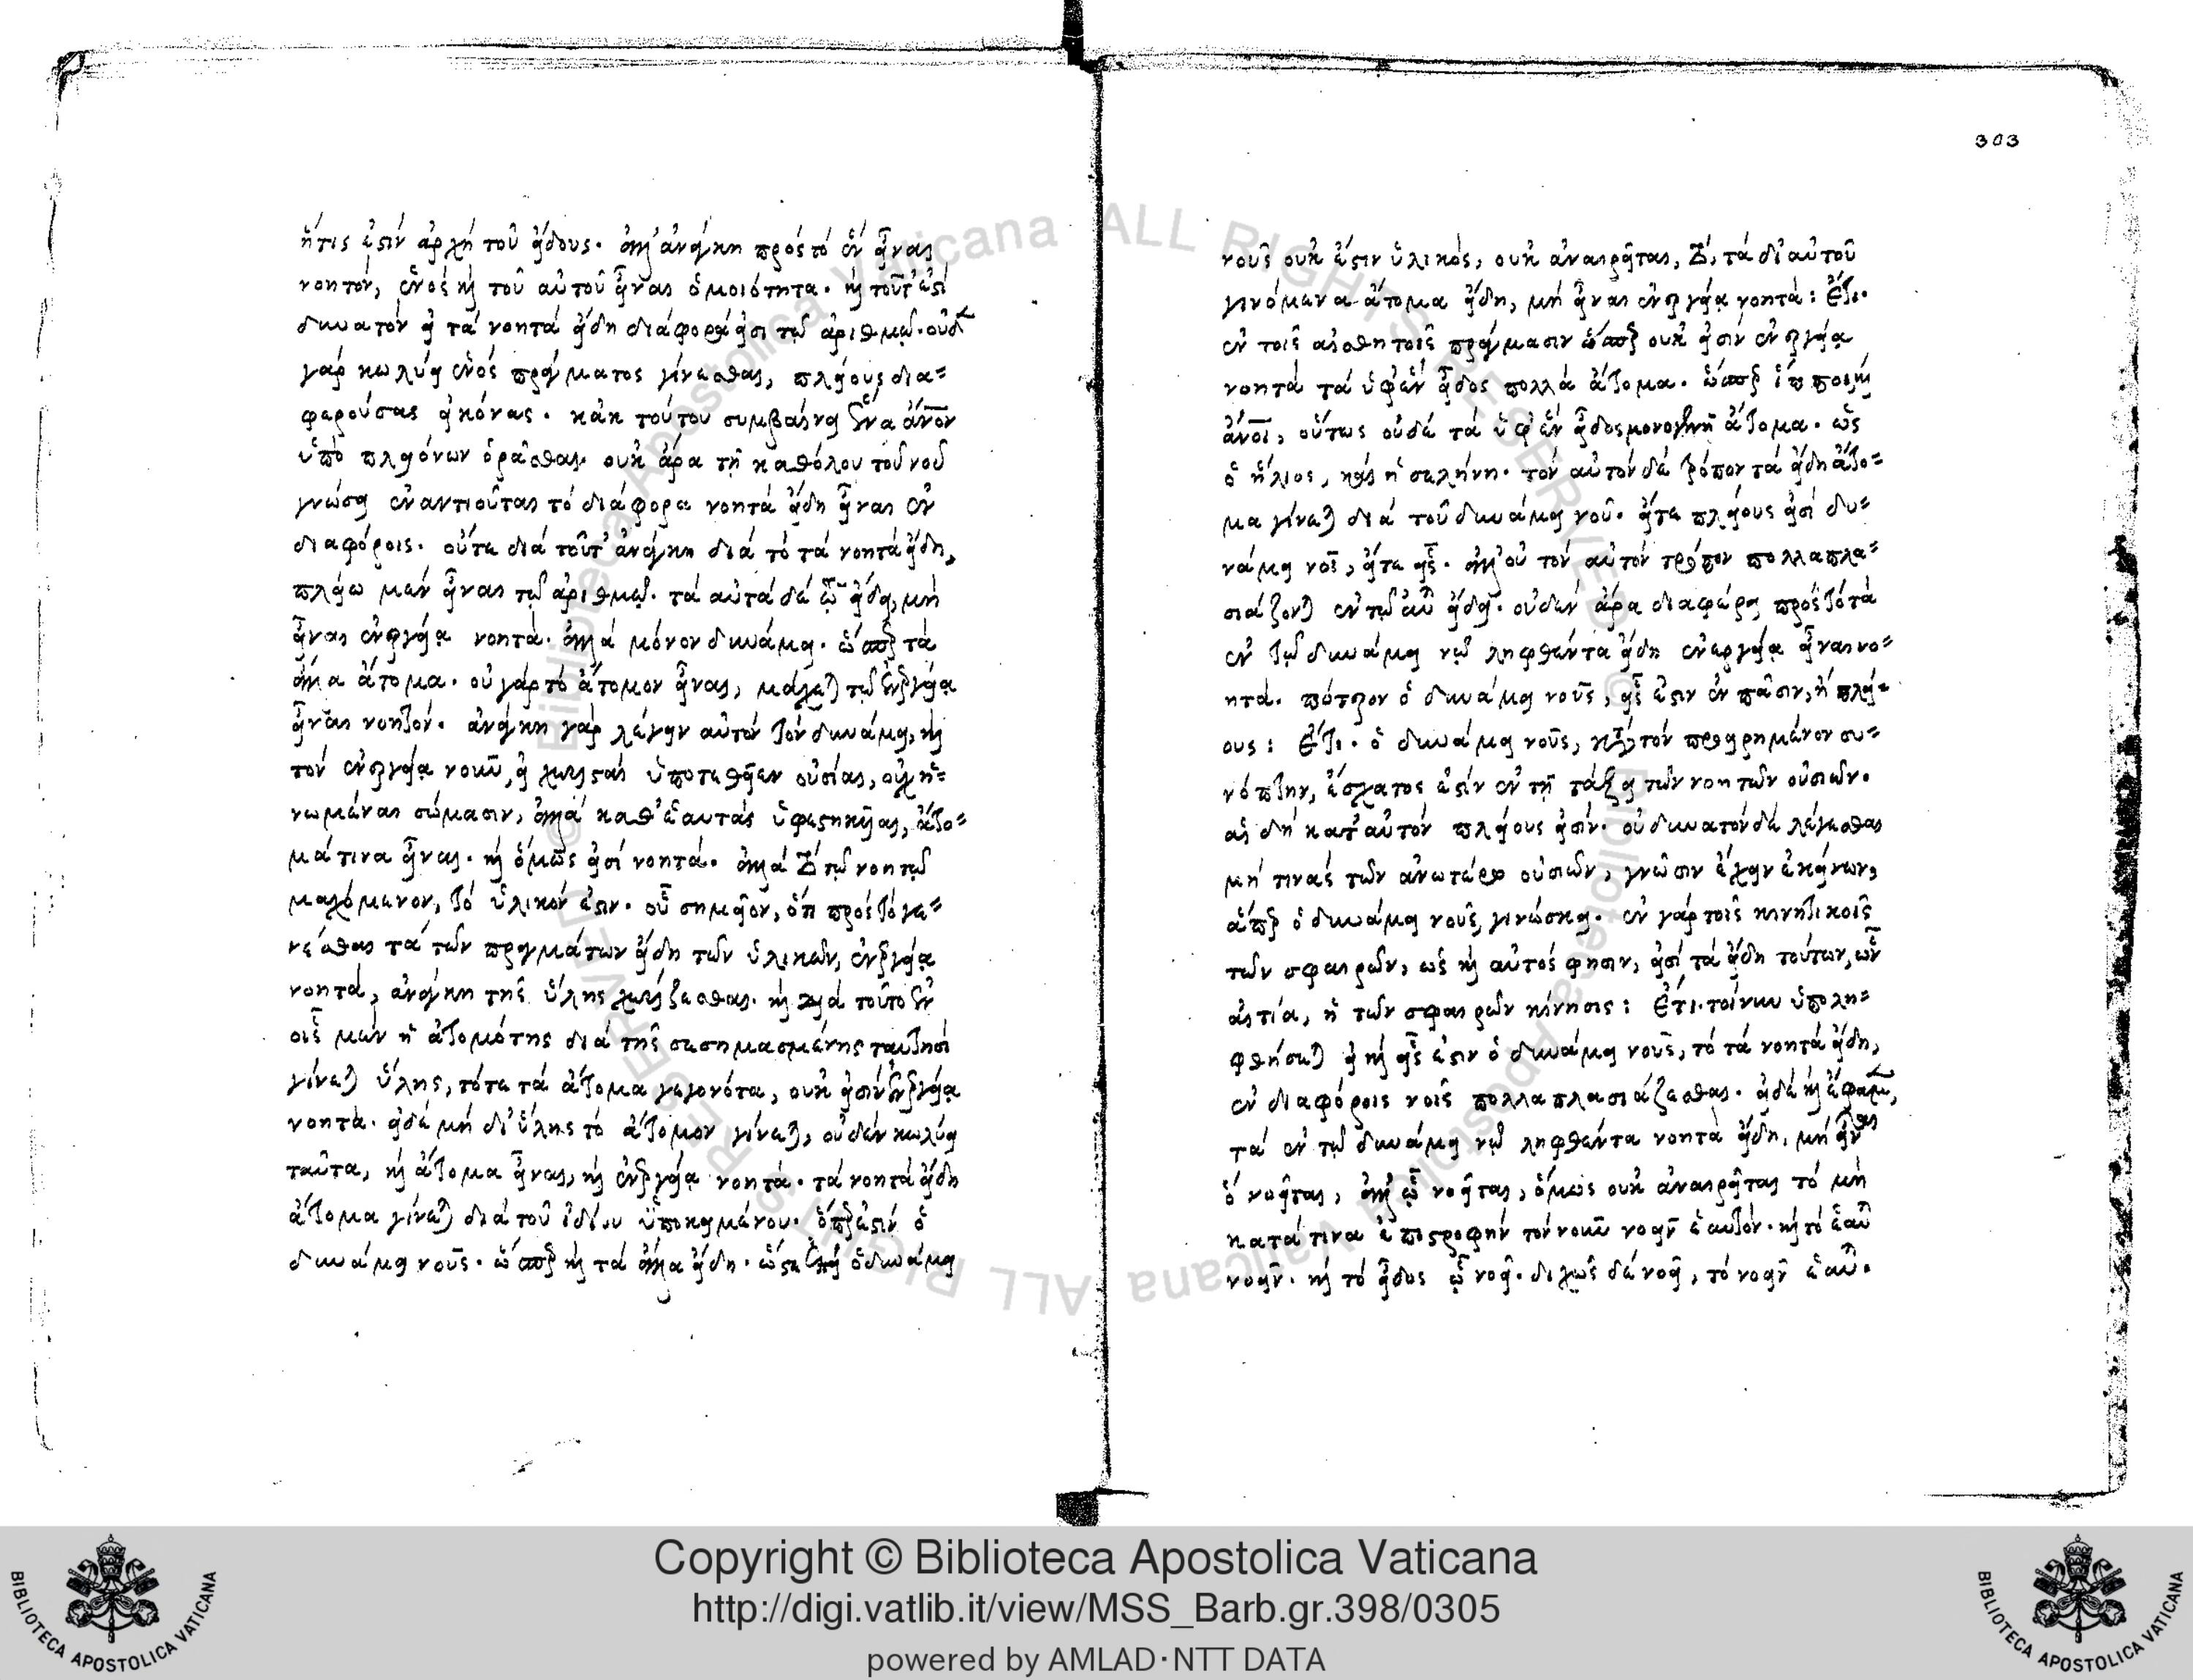 ἥτις ἐστὶν ἀρχὴ τοῦ εἴδους. ἀλλ' ἀνάγκη πρὸς τὸ ἓν εἶναι
νοητόν, ἑνὸς καὶ τοῦ αὐτοῦ εἶναι ὁμοιότητα. καὶ τοῦτ' ἐστὶ
δυνατὸν εἰ τὰ νοητὰ εἴδη διάφορά εἰσι τῷ ἀριθμῷ. οὐδὲ
γὰρ κωλύει ἑνὸς πράγματος γίνεσθαι, πλείους δια=
φερούσας εἰκόνας. κἀκ τούτου συμβαίνει ἕνα ἄνον
ὑπὸ πλειόνων ὁρᾶσθαι. οὐκ ἄρα τῇ καθόλου τοῦ νοῦ
γνώσει ἐναντιοῦται τὸ διάφορα νοητὰ εἴδη εἶναι ἐν
διαφόροις. οὔτε διὰ τοῦτ' ἀνάγκη διὰ τὸ τὰ νοητὰ εἴδη,
πλείω μὲν εἶναι τῷ ἀριθμῷ. τὰ αὐτὰ δὲ ἐν εἴδει, μὴ
εἶναι ἐνεργείᾳ νοητά. ἀλλὰ μόνον δυνάμει. ὥσπερ τὰ
ἄλλα ἄτομα. οὐ γὰρ τὸ ἄτομον εἶναι, μάχεται τῷ ἐνεργείᾳ
εἶναι νοητόν. ἀνάγκη γὰρ λέγειν αὐτὸν τὸν δυνάμει, καὶ
τὸν ἐνεργείᾳ νοῦν, εἰ χωρισταὶ ὑποτεθεῖεν οὐσίαι, οὐχ ἡ=
νωμέναι σώμασιν, ἀλλὰ καθ' ἑαυτὰς ὑφεστηκυῖαι, ἄτο=
μά τινα εἶναι. καὶ ὅμως εἰσὶ νοητά. ἀλλὰ τῷ νοητῷ
μαχόμενον, τὸ ὑλικόν ἐστιν. οὗ σημεῖον, ὅτι πρὸς τὸ γε=
νέσθαι τὰ τῶν πραγμάτων εἴδη τῶν ὑλικῶν, ἐνεργείᾳ
νοητά, ἀνάγκη τῆς ὕλης χωρίζεσθαι. καὶ διὰ τοῦτο ἐν
οἷς μὲν ἡ ἀτομότης διὰ τῆς σεσημασμένης ταυτησὶ
γίνεται ὕλης, τότε τὰ ἄτομα γεγονότα, οὐκ εἰσὶν ἐνεργείᾳ
νοητά. εἰ δὲ μὴ δι' ὕλης τὸ ἄτομον γίνεται, οὐδὲν κωλύει
ταῦτα, καὶ ἄτομα εἶναι, καὶ ἐνεργείᾳ νοητά. τὰ νοητὰ εἴδη
ἄτομα γίνεται διὰ τοῦ ἰδίου ὑποκειμένου. ὅπερ ἐστὶν ὁ
δυνάμει νοῦς. ὥσπερ καὶ τὰ ἄλλα εἴδη. ὥστε ἐπεὶ ὁ δυνάμει
303
νοῦς οὐκ ἔστιν ὑλικός, οὐκ ἀναιρεῖται, τὰ δι' αὐτοῦ
γινόμενα ἄτομα εἴδη, μὴ εἶναι ἐνεργείᾳ νοητά: Ἔτι.
ἐν τοῖς αἰσθητοῖς πράγμασιν ὥσπερ οὐκ εἰσὶν ἐνεργείᾳ
νοητὰ τὰ ὑφ' ἓν εἶδος πολλὰ ἄτομα. ὥσπερ ἵπποι καὶ
ἄνοι, οὕτως οὐδὲ τὰ ὑφ' ἓν εἶδος μονογενῆ ἄτομα. ὡς
ὁ ἥλιος, καὶ ἡ σελήνη. τὸν αὐτὸν δὲ τρόπον τὰ εἴδη ἄτο=
μα γίνεται διὰ τοῦ δυνάμει νοῦ. εἴτε πλείους εἰσὶ δυ=
νάμει νοῖ, εἴτε εἷς. ἀλλ' οὐ τὸν αὐτὸν τρόπον πολλαπλα=
σιάζονται ἐν τῷ αὐτῷ εἴδει. οὐδὲν ἄρα διαφέρει πρὸς τὸ τὰ
ἐν τῷ δυνάμει νῷ ληφθέντα εἴδη ἐνεργείᾳ εἶναι νο=
ητά. πότερον ὁ δυνάμει νοῦς, εἷς ἐστιν ἐν πᾶσιν, ἢ πλεί=
ους: Ἔτι. ὁ δυνάμει νοῦς, κατὰ τὸν προειρημένον συ=
νόπτην, ἔσχατός ἐστιν ἐν τῇ τάξει τῶν νοητῶν οὐσιῶν.
αἳ δὴ κατ' αὐτὸν πλείους εἰσίν. οὐ δυνατὸν δὲ λέγεσθαι
μή τινας τῶν ἀνωτέρω οὐσιῶν, γνῶσιν ἔχειν ἐκείνων,
ἅπερ ὁ δυνάμει νοῦς, γινώσκει. ἐν γὰρ τοῖς κινητικοῖς
τῶν σφαιρῶν, ὡς καὶ αὐτός φησιν, εἰσὶ τὰ εἴδη τούτων, ὧν
αἰτία, ἡ τῶν σφαιρῶν κίνησις: Ἔτι τοίνυν ὑπολη=
φθήσεται εἰ καὶ εἷς ἐστιν ὁ δυνάμει νοῦς, τὸ τὰ νοητὰ εἴδη,
ἐν διαφόροις νοῖς πολλαπλασιάζεσθαι. εἰ δὲ καὶ ἔφαμεν,
τὰ ἐν τῷ δυνάμει νῷ ληφθέντα νοητὰ εἴδη, μὴ εἶναι
ὃ νοεῖται, ἀλλ' ᾧ νοεῖται, ὅμως οὐκ ἀναιρεῖται τὸ μὴ
κατά τινα ἐπιστροφὴν τὸν νοῦν νοεῖν ἑαυτόν. καὶ τὸ ἑαυτοῦ
νοεῖν. καὶ τὸ εἶδος ᾧ νοεῖ. διχῶς δὲ νοεῖ, τὸ νοεῖν ἑαυτοῦ.
Copyright © Biblioteca Apostolica Vaticana
http://digi.vatlib.it/view/MSS_Barb.gr.398/0305
powered by AMLAD·NTT DATA